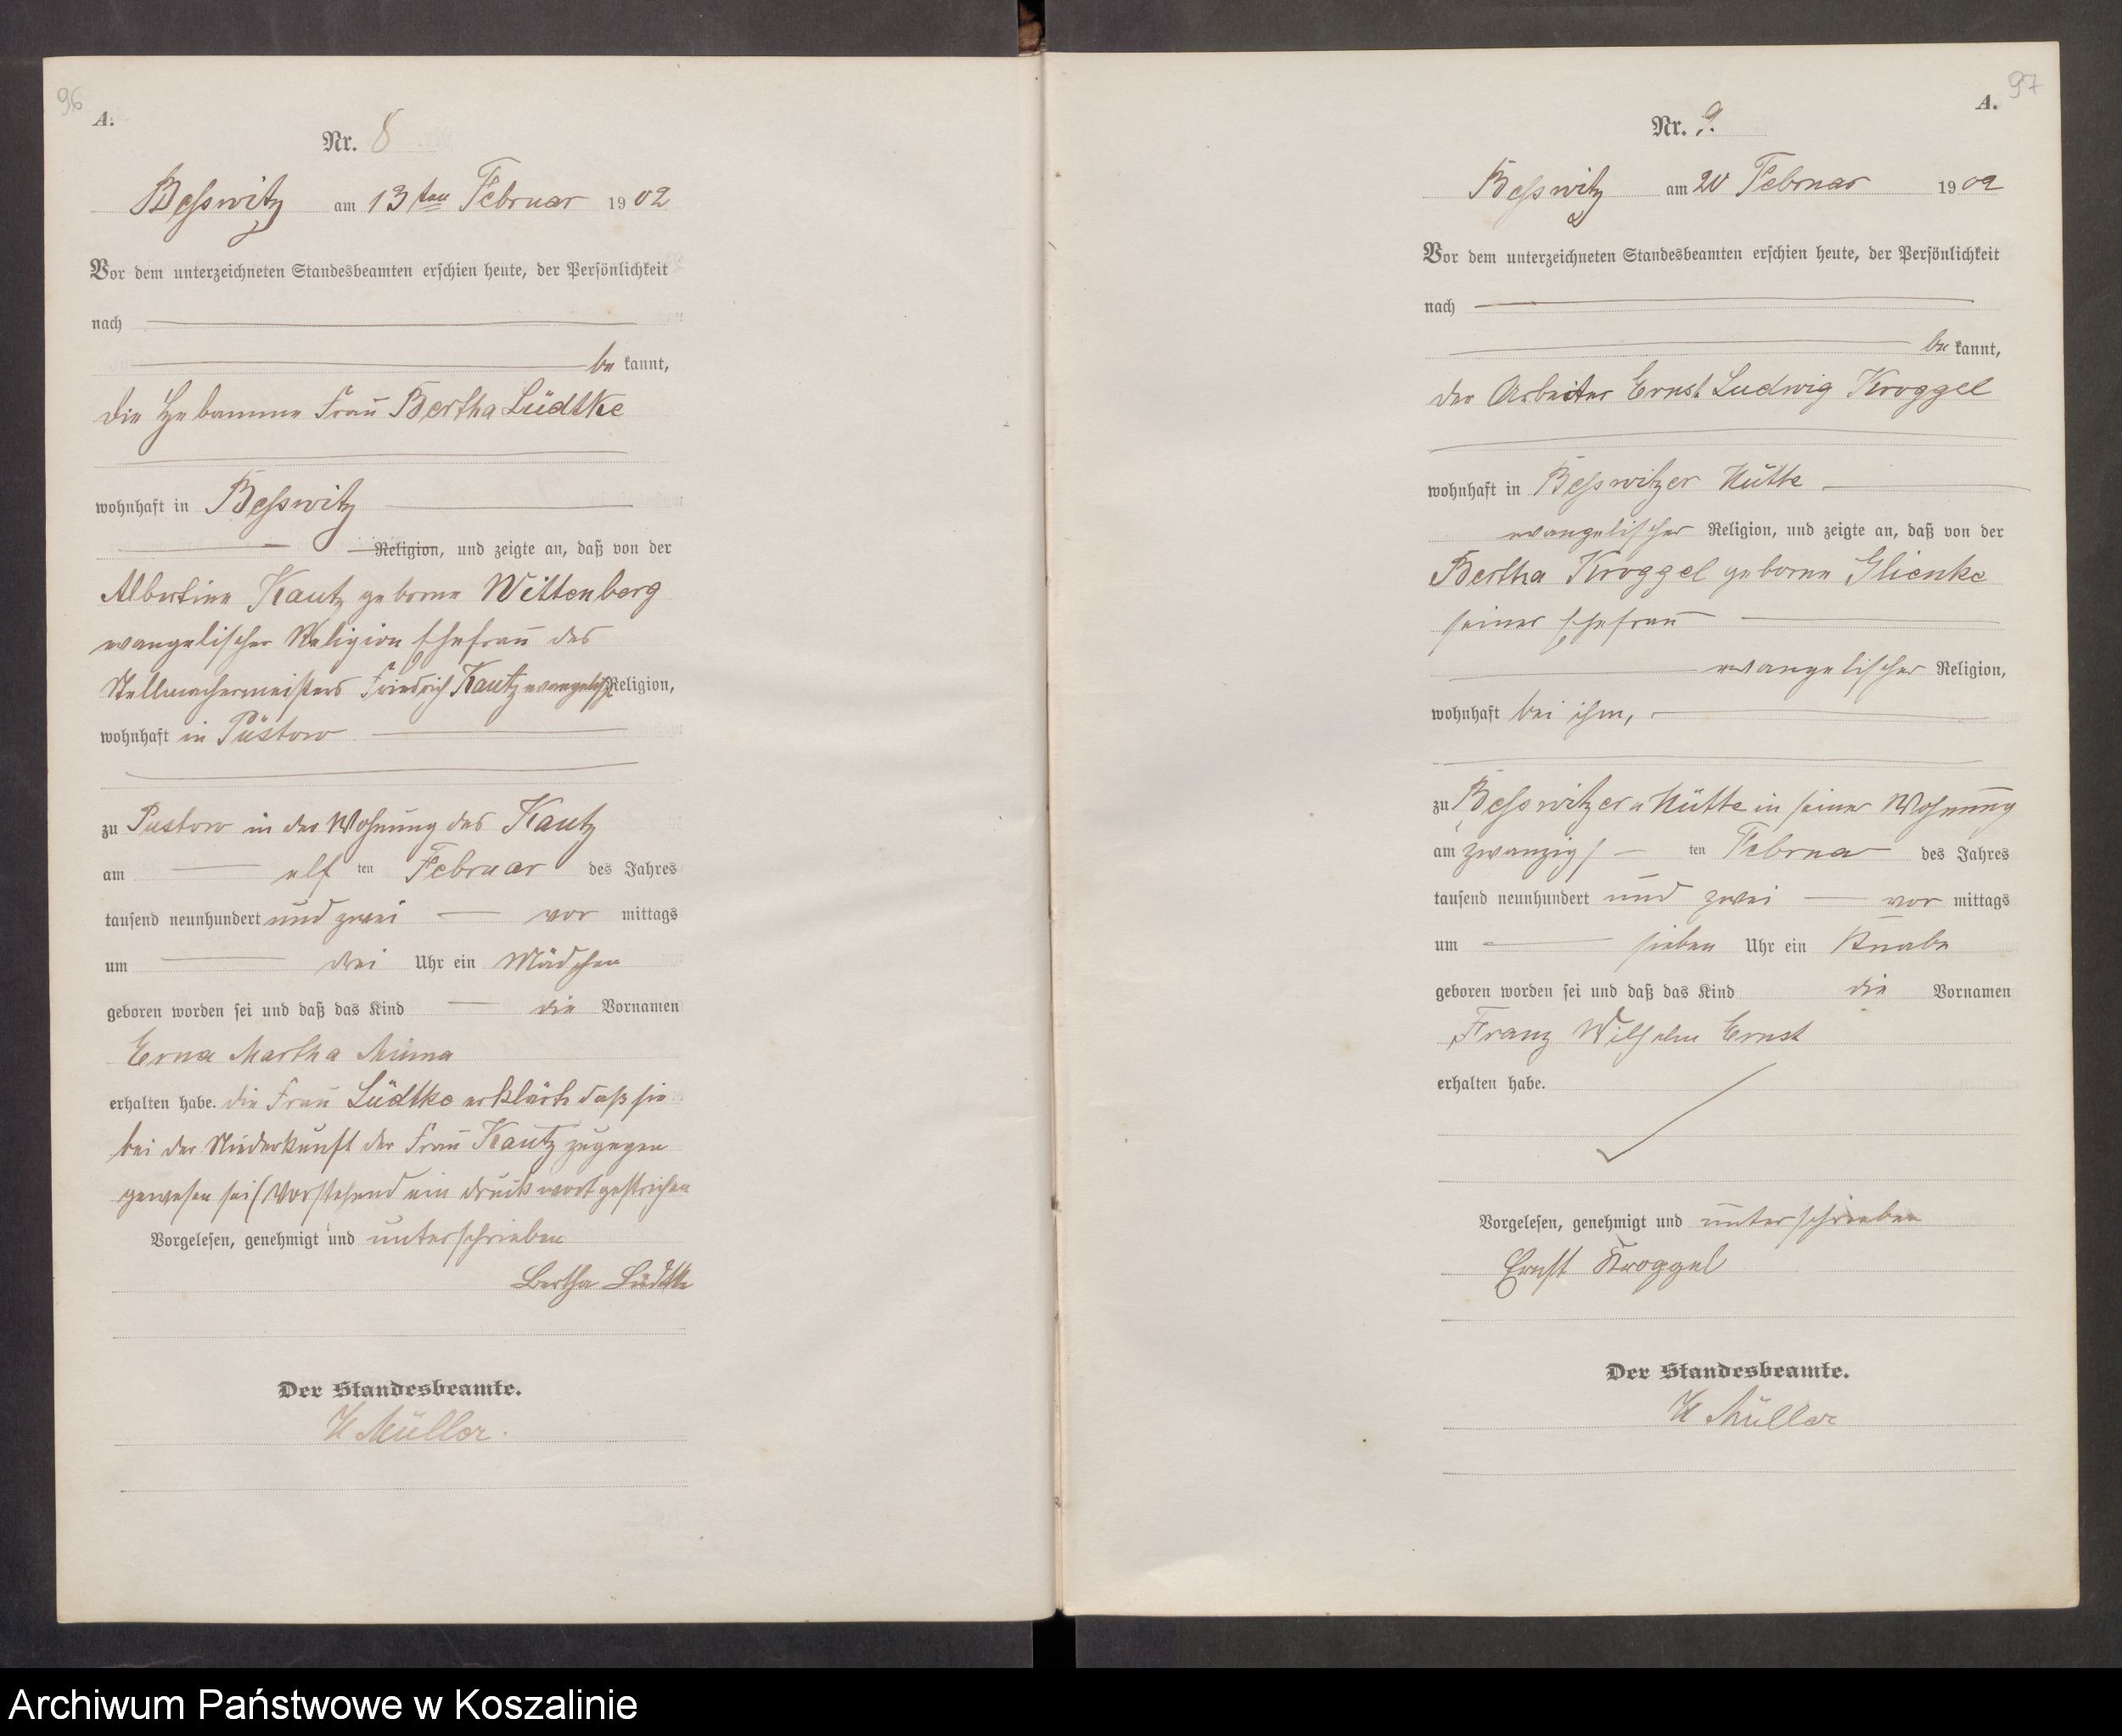 96
A.
Nr. 8
Beßwitz am 13ten Februar 1902
Vor dem unterzeichneten Standesbeamten erschien heute, der Persönlichkeit
nach
be kannt,
die Hebamme Frau Bertha Lüdtke
wohnhaft in Beßwitz
Religion, und zeigte an, daß von der
Albertine Kautz geborne Wittenberg
evangelischer Religion Ehefrau des
Stellmachermeisters Friedrich Kautz evangelisch Religion,
wohnhaft in Püstow
zu Püstow in der Wohnung des Kautz
am elf ten Februar des Jahres
tausend neunhundert und zwei vor mittags
um drei Uhr ein Mädchen
geboren worden sei und daß das Kind die Vornamen
Erna Martha Minna
erhalten habe. die Frau Lüdtke erklärte daß sie
bei der Niederkunft der Frau Kautz zugegen
gewesen sei (Vorstehend ein Druckwort gestrichen
Vorgelesen, genehmigt und unterschrieben
Bertha Lüdtke
Der Standesbeamte.
H Müller.
97
A.
Nr. 9.
Beßwitz am 20 Februar 1902
Vor dem unterzeichneten Standesbeamten erschien heute, der Persönlichkeit
nach
be kannt,
der Arbeiter Ernst Ludwig Kroggel
wohnhaft in Beßwitzer Hütte
evangelischer Religion, und zeigte an, daß von der
Bertha Kroggel geborne Glienke
seiner Ehefrau
evangelischer Religion,
wohnhaft bei ihm,
zu Beßwitzer Hütte in seiner Wohnung
am zwanzigs ten Februar des Jahres
tausend neunhundert und zwei vor mittags
um sieben Uhr ein Knabe
geboren worden sei und daß das Kind die Vornamen
Franz Wilhelm Ernst
erhalten habe.
Vorgelesen, genehmigt und unterschrieben
Ernst Kroggel
Der Standesbeamte.
H Müller
Archiwum Państwowe w Koszalinie